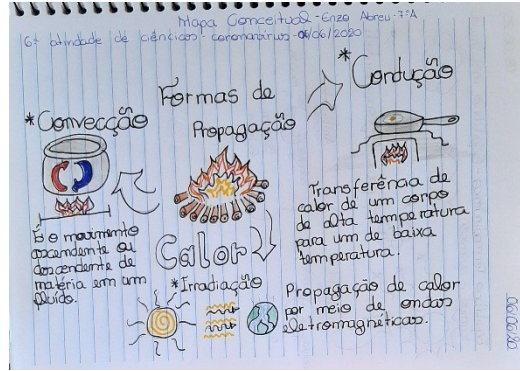 Mapa Conceitual - Enzo Abreu - 7ºA
6ª atividade de ciências - coronavírus - 04/06/2020
Formas de
Propagação
Calor
*Convecção
É o movimento
ascendente ou
descendente de
matéria em um
fluído.
*Condução
Transferência de
calor de um corpo
de alta temperatura
para um de baixa
temperatura.
*Irradiação
Propagação de calor
por meio de ondas
eletromagnéticas.